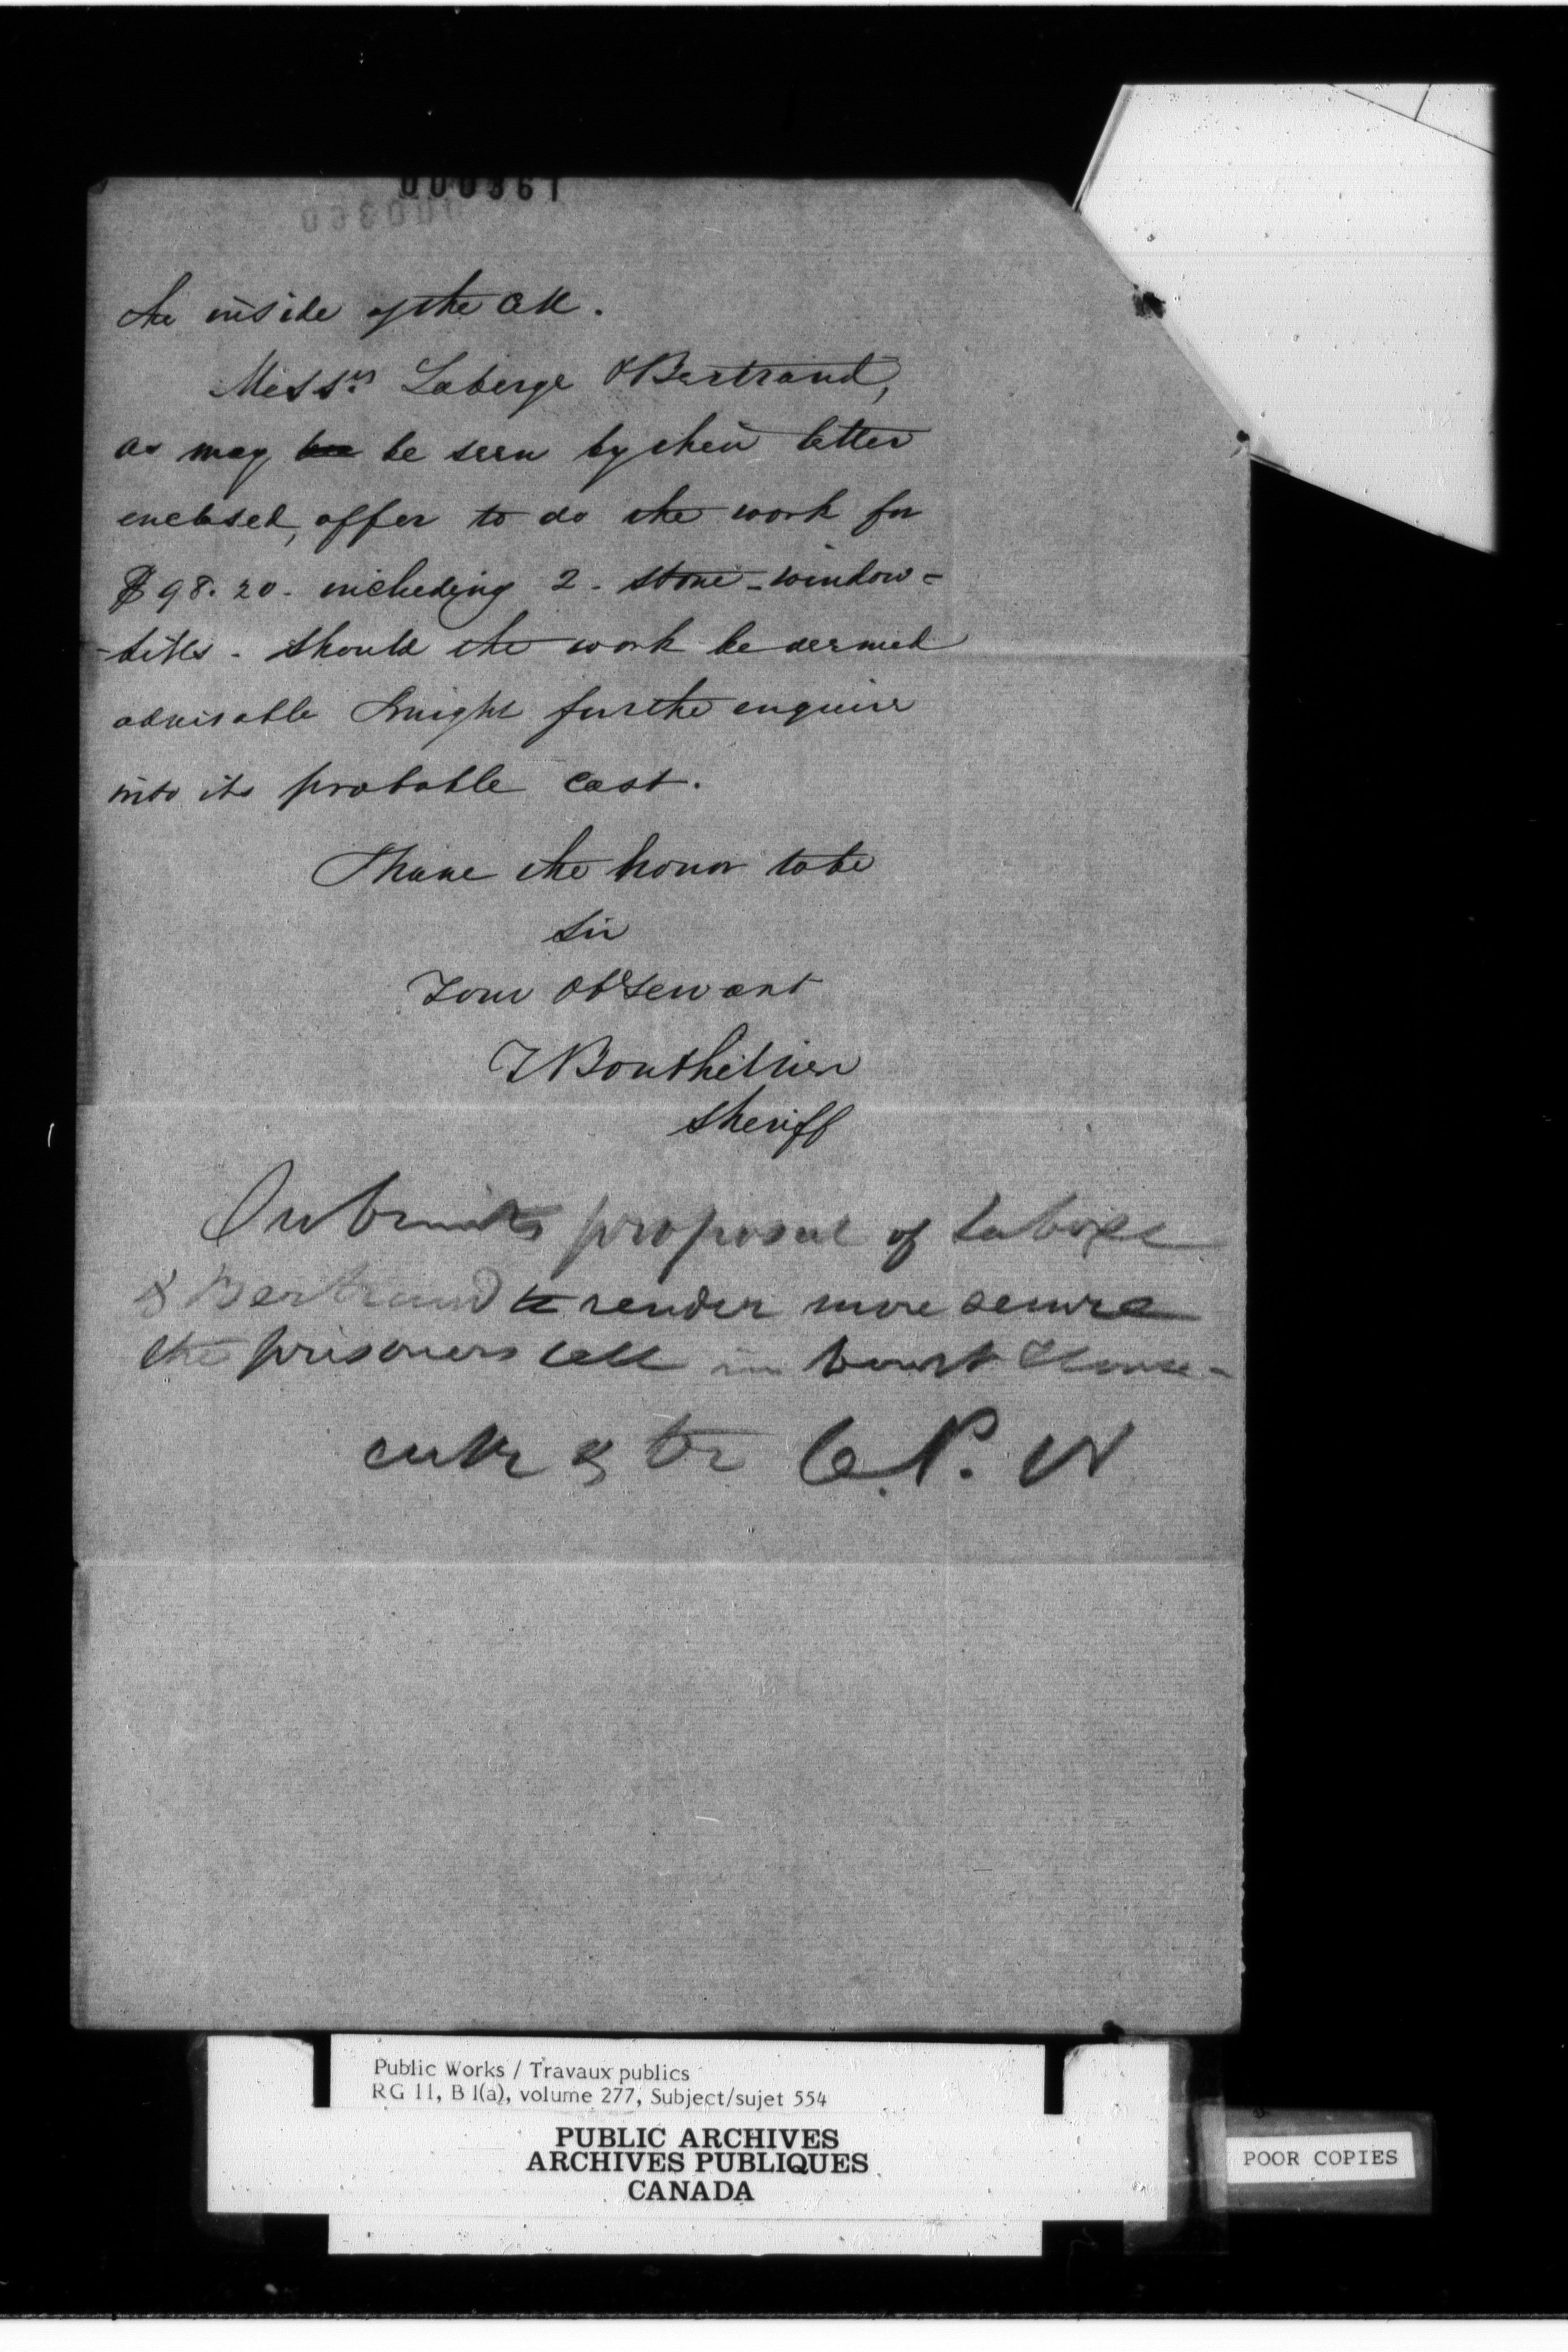 000361
000360
the inside of the cell.
Mess.rs Laberge & Bertrand,
as may be seen by their letter
enclosed, offer to do the work for
$98.20. including 2 - stone-window-
-sills. Should the work be deemed
advisable I might further enquire
into its probable cost.
I have the honor to be
Sir
Your Obt Servant
T Bouthillier
Sheriff
Submits proposal of Laberge
& Bertrand to render more secure
the prisoners cell in Court House -
Public Works / Travaux publics
RG 11, B 1(a), volume 277, Subject/sujet 554
PUBLIC ARCHIVES
ARCHIVES PUBLIQUES
CANADA
POOR COPIES